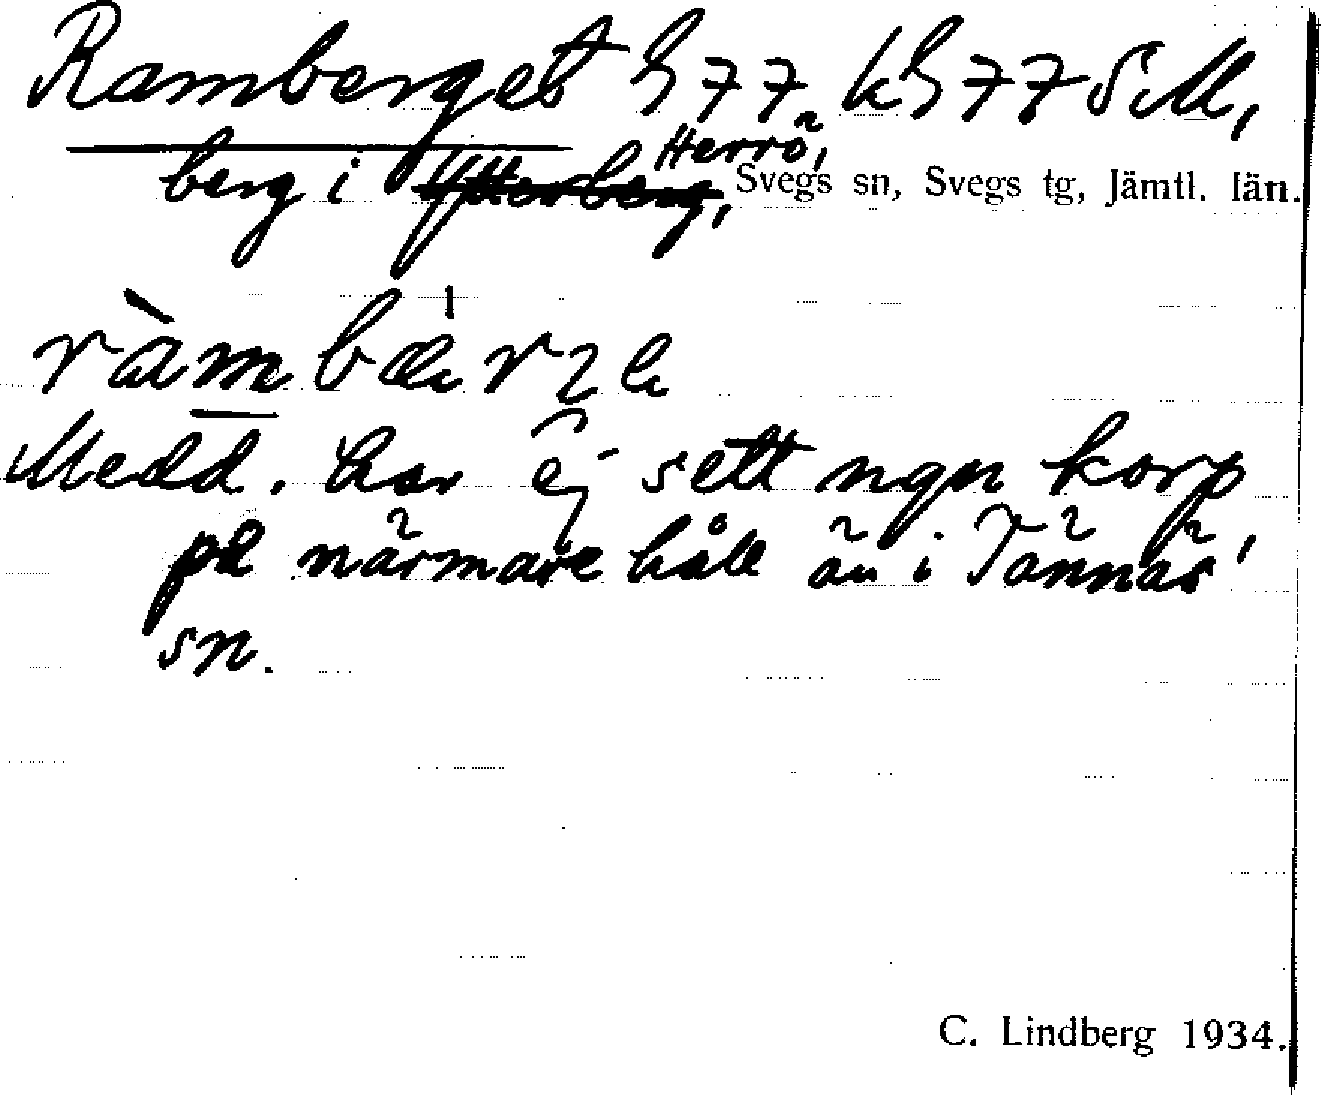 Ramberget h 77 kh 77 SM,
berg i Ytterberg, Herrö, Svegs sn, Svegs tg, Jämtl. län.
Medd. har ej sett ngn korp
på närmare håll än i Tännäs
sn.
C. Lindberg 1934.